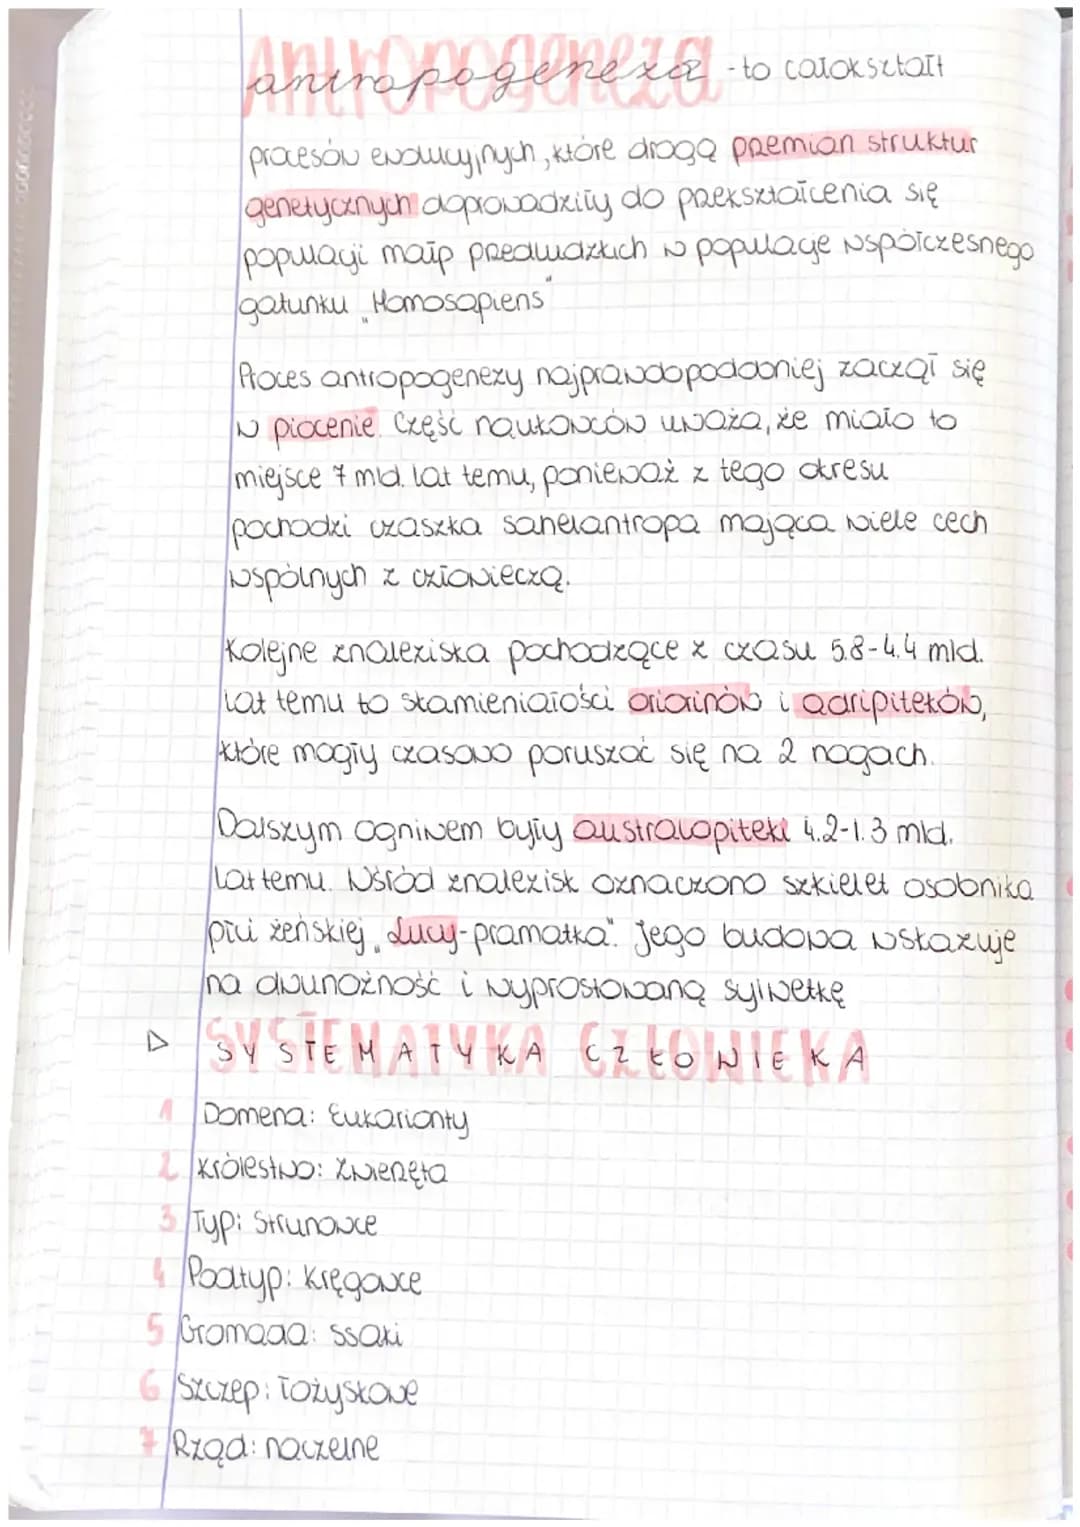 Antropogeneza
antropogeneza - to całokształt
procesów ewolucyjnych, które drogą przemian struktur
genetycznych doprowadziły do przekształcenia się
populacji małp przedludzkich w populacje współczesnego
gatunku „Homosapiens"
Proces antropogenezy najprawdopodobniej zaczął się
w plocenie. Część naukowców uważa, że miało to
miejsce 7 mld. lat temu, ponieważ z tego okresu
pochodzi czaszka sahelantropa mająca wiele cech
wspólnych z człowieczą.
Kolejne znaleziska pochodzące z czasu 5.8-4.4 mld.
lat temu to skamieniałości oriorinów i adripiteków,
które mogły czasowo poruszać się na 2 nogach.
Dalszym ogniwem były australopiteki 4.2-1.3 mld.
lat temu. Wśród znalezisk oznaczono szkielet osobnika
płci żeńskiej „Lucy-pramatka". Jego budowa wskazuje
na dwunożność i wyprostowaną sylwetkę
▷ SYSTEMATYKA CZŁOWIEKA
1 Domena: Eukarionty
2 Królestwo: Zwierzęta
3 Typ: Strunowce
4 Podtyp: Kręgowce
5 Gromada: ssaki
6 Szczep: łożyskowe
7 Rząd: naczelne